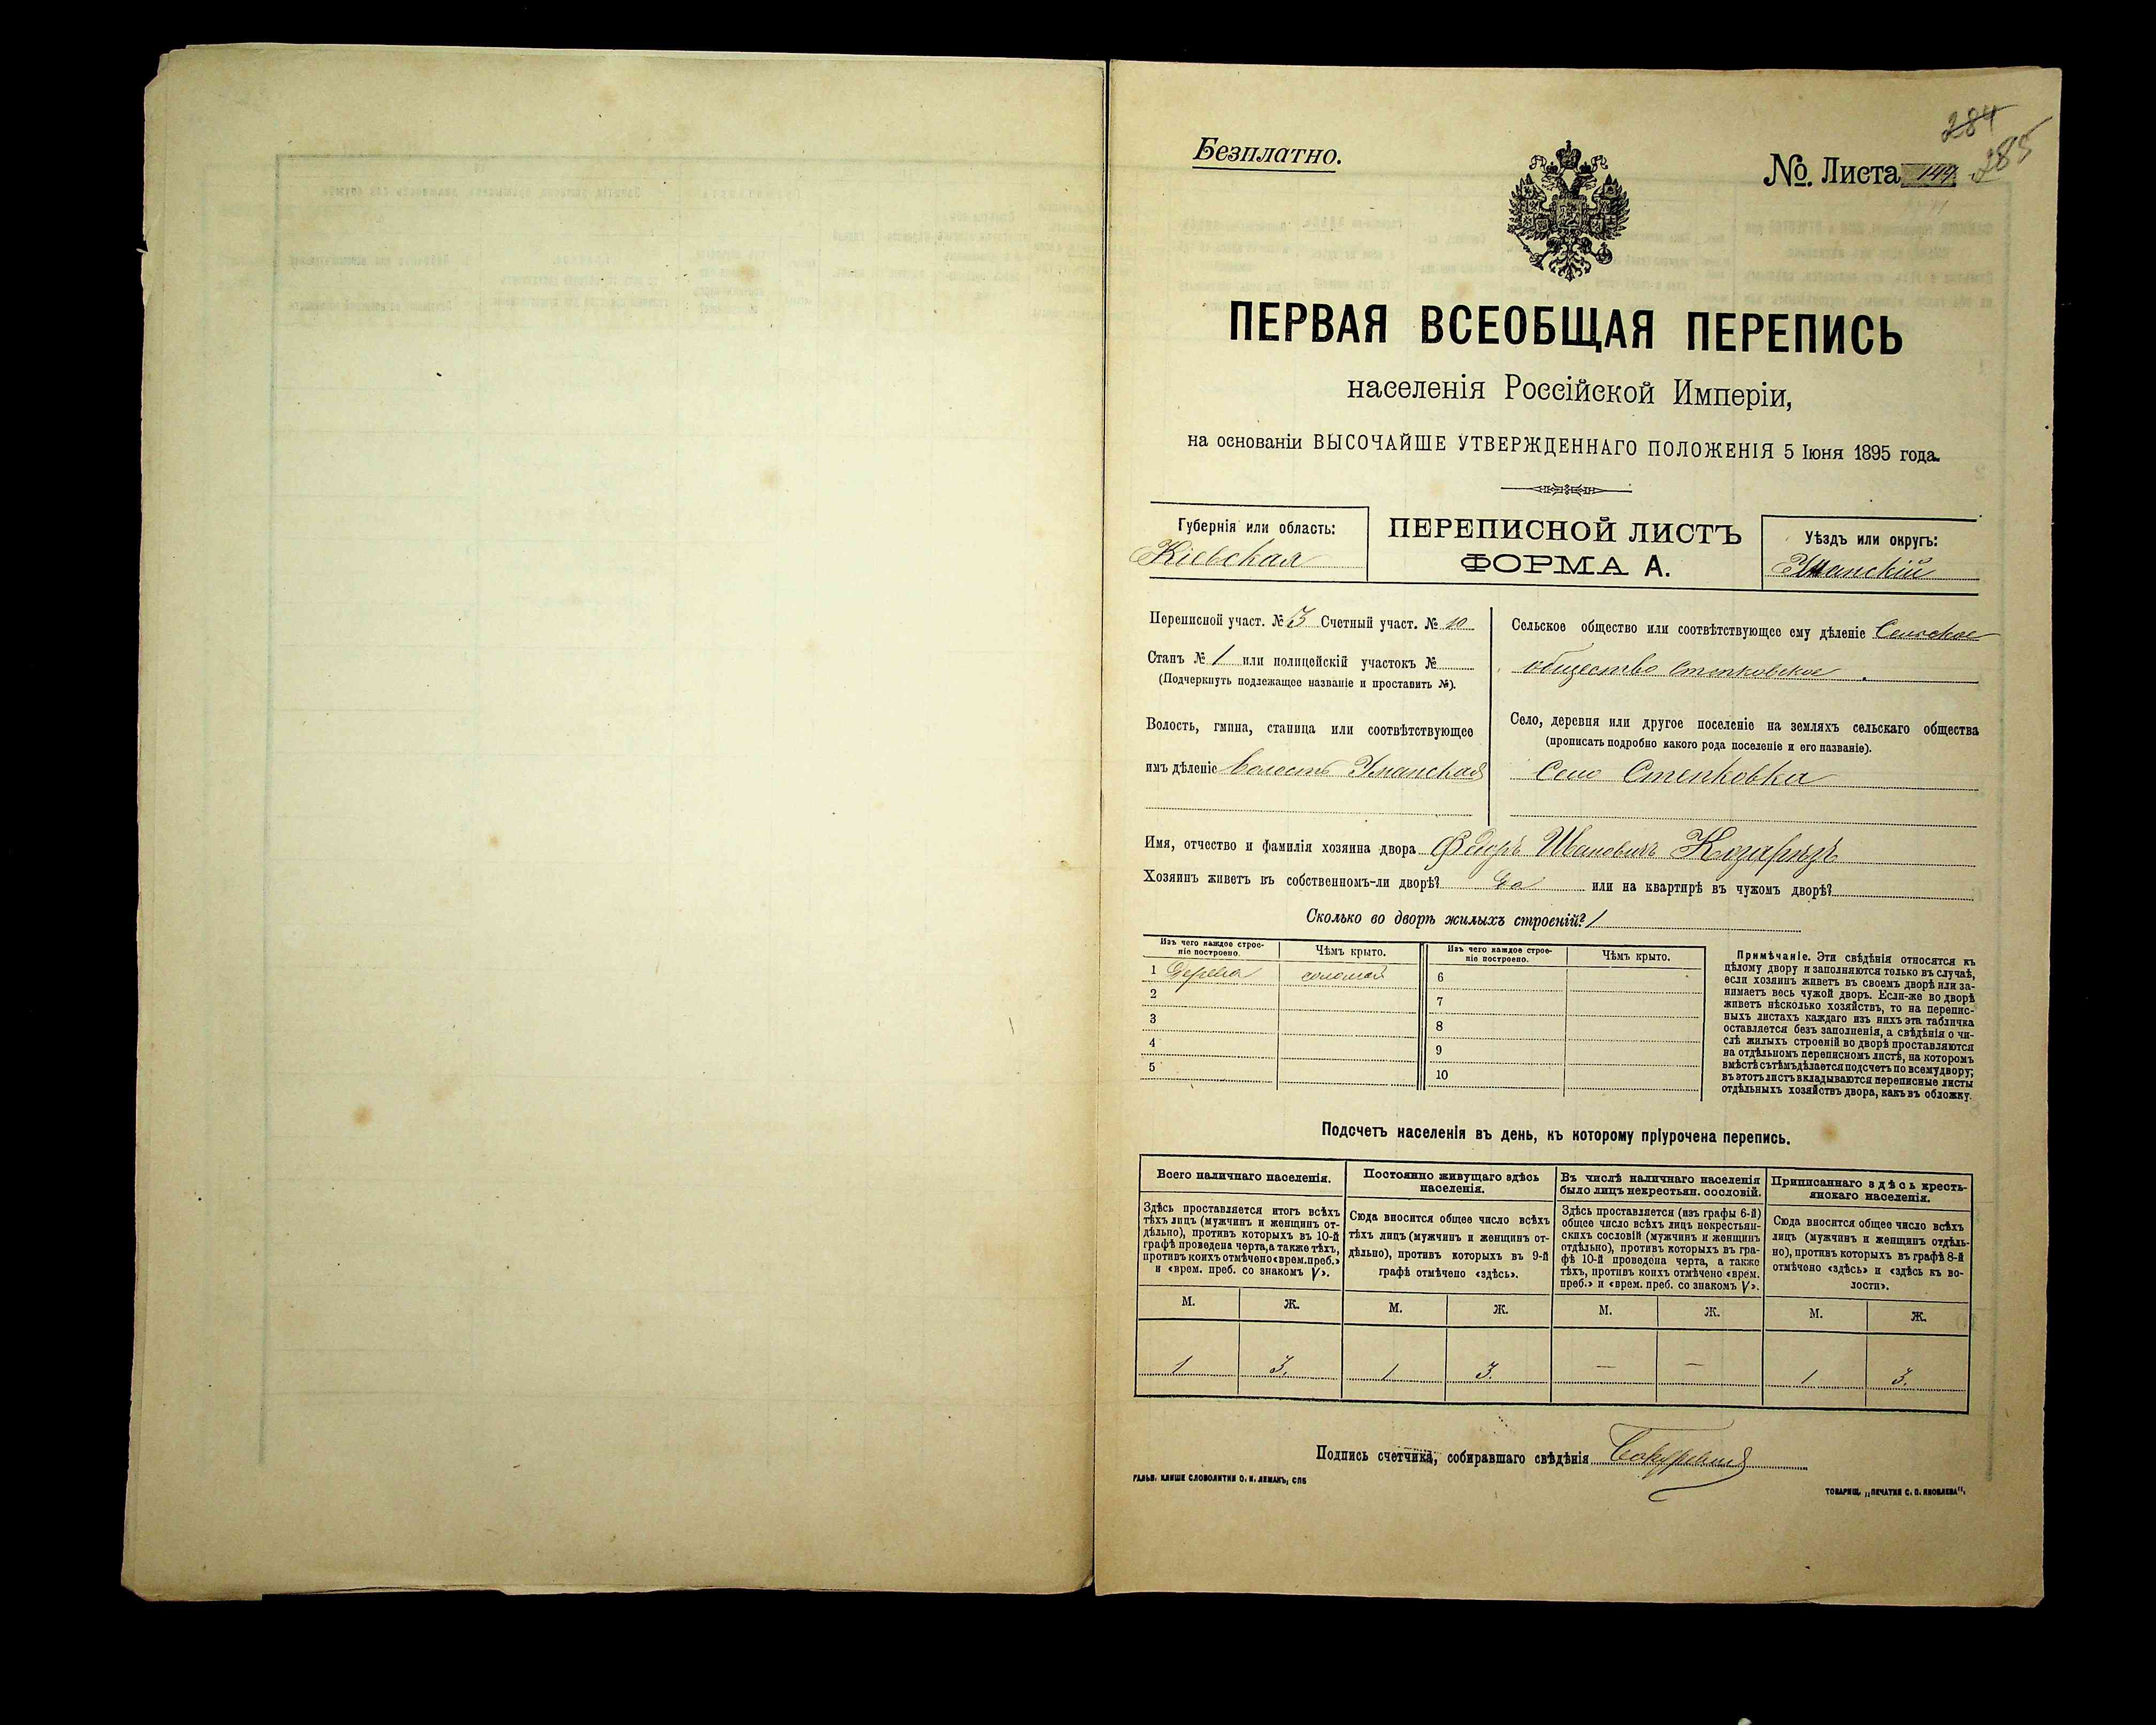 284
285
Безплатно.
№. Листа 144.
ПЕРВАЯ ВСЕОБЩАЯ ПЕРЕПИСЬ
населенія Россійской Имперіи,
на основаніи ВЫСОЧАЙШЕ УТВЕРЖДЕННАГО ПОЛОЖЕНІЯ 5 Іюня 1895 года.
Губернія или область:
Кіевская
ПЕРЕПИСНОЙ ЛИСТЪ
ФОРМА А.
Уѣздъ или округъ:
Уманскій
Переписной участ. № 3 Счетный участ. № 10
Станъ № 1 или полицейскій участокъ №
(Подчеркнуть подлежащее названіе и проставить №).
Волость, гмина, станица или соотвѣтствующее
имъ дѣленіе Волость Уманская
Сельское общество или соотвѣтствующее ему дѣленіе Сельское
общество Степковское
Село, деревня или другое поселеніе на земляхъ сельскаго общества
(прописать подробно какого рода поселеніе и его названіе).
Село Степковка
Имя, отчество и фамилія хозяина двора Ѳедоръ Ивановичъ
Хозяинъ живетъ въ собственномъ-ли дворѣ? да или на квартирѣ въ чужомъ дворѣ?
Сколько во дворѣ жилыхъ строеній? 1
Изъ чего каждое строе-
ніе построено.
Чѣмъ крыто.
Изъ чего каждое строе-
ніе построено.
Чѣмъ крыто.
1 Дерева соломой
2
3
4
5
6
7
8
9
10
Примѣчаніе. Эти свѣдѣнія относятся къ
цѣлому двору и заполняются только въ случаѣ,
если хозяинъ живетъ въ своемъ дворѣ или за-
нимаетъ весь чужой дворъ. Если-же во дворѣ
живетъ нѣсколько хозяйствъ, то на перепис-
ныхъ листахъ каждаго изъ нихъ эта табличка
оставляется безъ заполненія, а свѣдѣнія о чи-
слѣ жилыхъ строеній во дворѣ проставляются
на отдѣльномъ переписномъ листѣ, на которомъ
вмѣстѣ съ тѣмъ дѣлается подсчетъ по всему двору;
въ этотъ листъ вкладываются переписные листы
отдѣльныхъ хозяйствъ двора, какъ въ обложку.
Подсчетъ населенія въ день, къ которому пріурочена перепись.
Всего наличнаго населенія.
Здѣсь проставляется итогъ всѣхъ
тѣхъ лицъ (мужчинъ и женщинъ от-
дѣльно), противъ которыхъ въ 10-й
графѣ проведена черта, а также тѣхъ,
противъ коихъ отмѣчено «врем. преб.»
и «врем. преб. со знакомъ V».
М. Ж.
1 3.
Постоянно живущаго здѣсь
населенія.
Сюда вносится общее число всѣхъ
тѣхъ лицъ (мужчинъ и женщинъ от-
дѣльно), противъ которыхъ въ 9-й
графѣ отмѣчено «здѣсь».
М. Ж.
1 3.
Въ числѣ наличнаго населенія
было лицъ некрестьян. сословій.
Здѣсь проставляется (изъ графы 6-й)
общее число всѣхъ лицъ некрестьян-
скихъ сословій (мужчинъ и женщинъ
отдѣльно), противъ которыхъ въ гра-
фѣ 10-й проведена черта, а также
тѣхъ, противъ коихъ отмѣчено «врем.
преб.» и «врем. преб. со знакомъ V».
М. Ж.
— —
Приписаннаго здѣсь кресть-
янскаго населенія.
Сюда вносится общее число всѣхъ
лицъ (мужчинъ и женщинъ отдѣль-
но), противъ которыхъ въ графѣ 8-й
отмѣчено «здѣсь» и «здѣсь къ во-
лости».
М. Ж.
1 3.
Подпись счетчика, собиравшаго свѣдѣнія
ГАЛЬВ. КЛИШЕ СЛОВОЛИТНИ О. И. ЛЕМАНЪ, СПБ
ТОВАРИЩ. „ПЕЧАТНЯ С. П. ЯКОВЛЕВА".